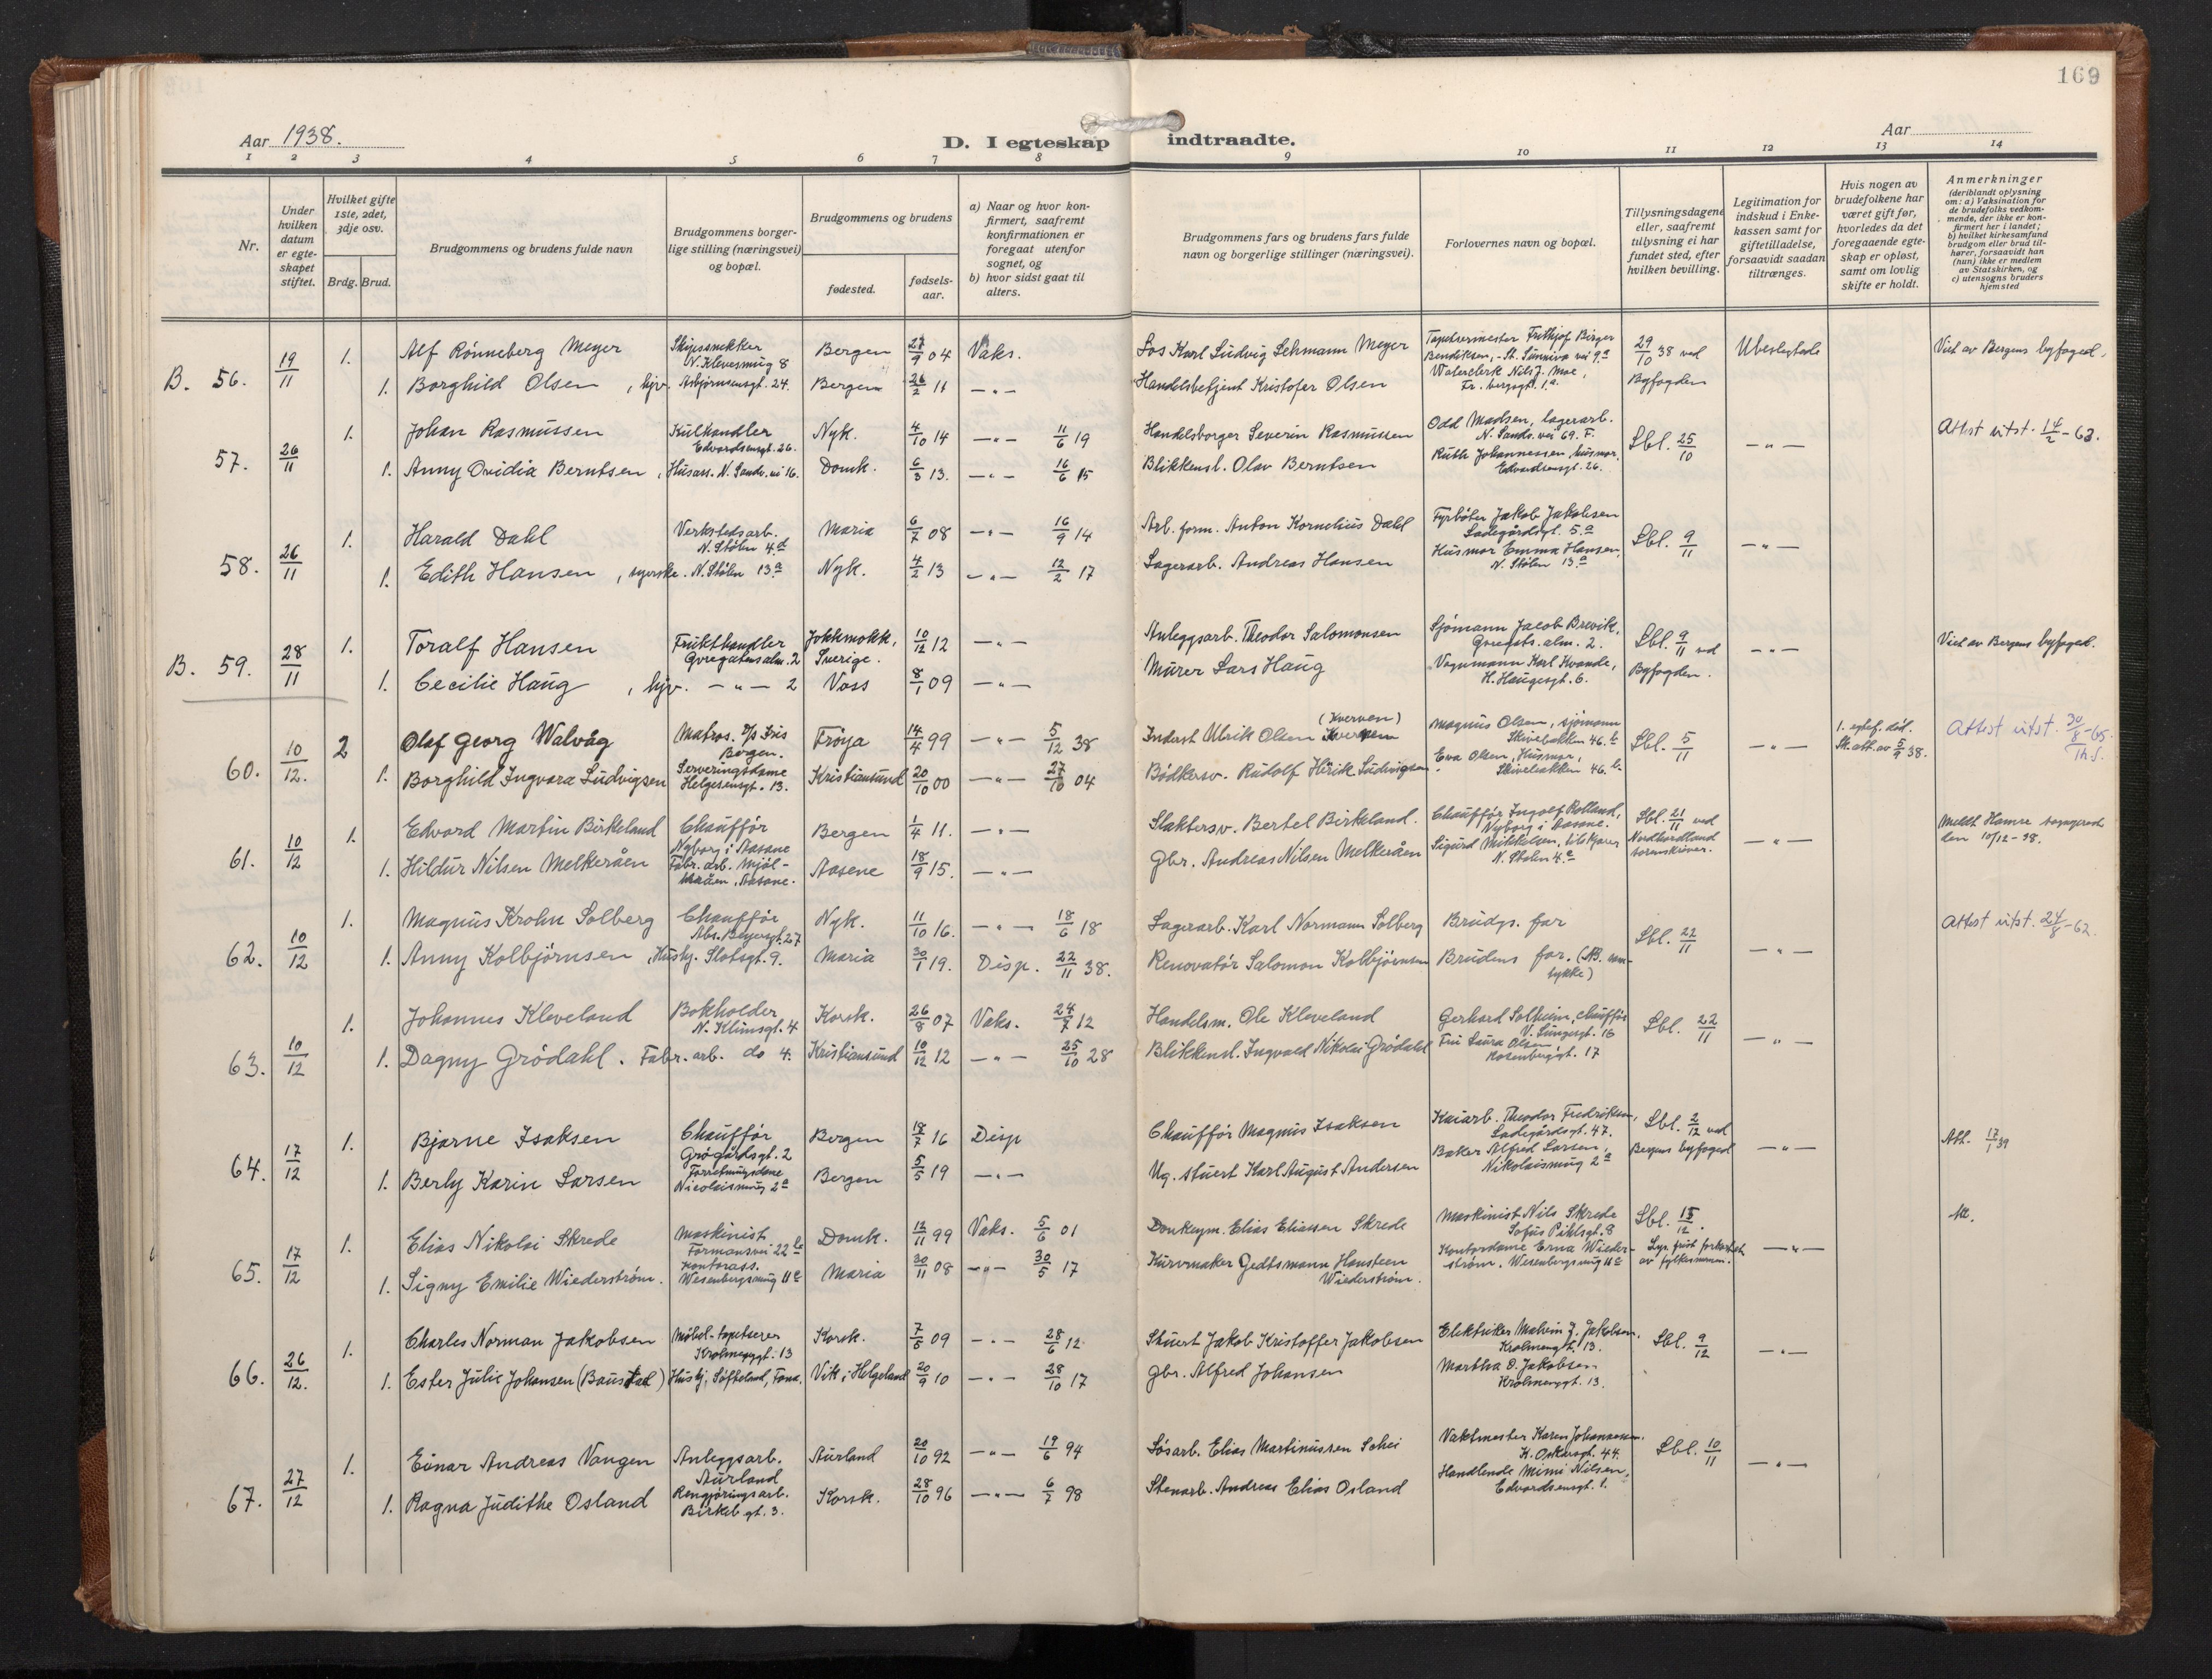 169
Aar 1938.
D. I egteskap indtraadte.
Aar
1 2 3 4 5 6 7 8 9 10 11 12 13 14
Nr.
Under hvilken datum er egte-skapet stiftet.
Hvilket gifte 1ste, 2det, 3dje osv.
Brdg. Brud.
Brudgommens og brudens fulde navn
Brudgommens borger-lige stilling (næringsvei) og bopæl.
Brudgommens og brudens
fødested.
fødsels-aar.
a) Naar og hvor kon-firmert, saafremt konfirmationen er foregaat utenfor sognet, og
b) hvor sidst gaat til alters.
Brudgommens fars og brudens fars fulde navn og borgerlige stillinger (næringsvei).
Forlovernes navn og bopæl.
Tillysningsdagene eller, saafremt tillysning ei har fundet sted, efter hvilken bevilling.
Legitimation for indskud i Enke-kassen samt for giftetilladelse, forsaavidt saadan tiltrænges.
Hvis nogen av brudefolkene har været gift før, hvorledes da det foregaaende egte-skap er opløst, samt om lovlig skifte er holdt.
Anmerkninger (deriblandt oplysning om: a) Vaksination for de brudefolks vedkom-mende, der ikke er kon-firmert her i landet; b) hvilket kirkesamfund brudgom eller brud til-hører, forsaavidt han (hun) ikke er medlem av Statskirken, og c) utensogns bruders hjemsted
B. 56. 19/11 1. Alf Rönneberg Meyer Skipssnekker N. Klevesmug 8 Bergen 27/9 04 Vaks. Los Karl Ludvig Lehmann Meyer Tapetsermester Frithjof Birger Bendiksen, St. Sunniva vei 9a 29/10 38 ved Ubeslegtede Viet av Bergens byfoged.
1. Borghild Olsen, hjv. Asbjørnsensgt. 24. Bergen 26/2 11 — " — Handelsbetjent Kristofer Olsen Waterclerk Nils J. Moe, Fr. bergsgt. 1a. Byfogden
57. 26/11 1. Johan Rasmussen Kulhandler Edvardsensgt. 26. Nyk. 4/10 14 — " — 11/6 19 Handelsborger Severin Rasmussen Odd Madsen, lagerarb. N. Sands. vei 69. F. Lbl. 25/10 — " — Attest utst. 14/2-63.
1. Anny Ovidia Berntsen, Husass. N. Sands. vei 16. Domk. 6/3 13. — " — 16/6 15 Blikkensl. Olav Berntsen Ruth Johannessen husmor, Edvardsensgt. 26.
58. 26/11 1. Harald Dahl Verkstedsarb. N. Stölen 4d Maria 6/7 08 — " — 16/9 14 Arb. form. Anton Kornelius Dahl Fyrböter Jakob Jakobsen Ladegårdsgt. 5a Lbl. 9/11 — " —
1. Edith Hansen, syerske. N. Stölen 13a Nyk. 4/2 13 — " — 12/2 17 Lagerarb. Andreas Hansen Husmor Emma Hansen, N. Stölen 13a
B. 59. 28/11 1. Toralf Hansen Frukthandler Øvregatensalm. 2 Jokkmokk, Sverige. 10/12 12 — " — Anleggsarb. Theodor Salomonsen Sjömann Jacob Brevik, Øvregats. alm. 2. Lbl. 9/11 ved — " — Viet av Bergens byfoged.
1. Cecilie Haug, hjv. — " — 2 Voss 8/1 09 — " — Murer Lars Haug Vognmann Karl Kvamde, H. Haugesgt. 6. Byfogden.
60. 10/12. 2 Olaf Georg Walvåg Matros. D/s Iris Bergen. Fröya 14/4 99 — " — 5/12 38 Inderst Ulrik Olsen (Kverven) Magnus Olsen, sjömann Skivebakken 46.b Lbl. 5/11 — " — 1. egtef. död. Sk. att. av 5/9 38. Attest utst. 30/8-65 Th.S.
1. Borghild Ingvara Ludvigsen Serveringsdame Helgesensgt. 13. Kristiansund 20/10 00 — " — 27/10 04 Bödkersv. Rudolf Hirik Ludvigsen Eva Olsen, Husmor, Skivebakken 46.b
61. 10/12 1. Edvard Martin Birkeland Chaufför Nyborg i Aasane Bergen 1/4 11. — " — Slaktersv. Bertel Birkland. Chaufför Ingolf Rolland, Nyborg i Aasane. Lbl. 21/11 ved — " — Meldt Hamre sogneprest den 10/12-38.
1. Hildur Nilsen Melkeråen Fabr. arb. Mjöl-kråen, Aasane. Aasene 18/9 15. — " — Gbr. Andreas Nilsen Melkeråen Sigurd Mikkelsen, bilkjører N. Stølen 4.e Nordhordland sorenskriver.
62. 10/12 1. Magnus Krohn Solberg Chaufför Abs. Beyersgt. 27 Nyk. 11/10 16. — " — 18/6 18 Lagerarb. Karl Normann Solberg Brudgs. far Lbl. 22/11 — " — Attest utst. 24/8-62.
1. Anny Kolbjørnsen, Hushj. Slotsgt. 9. Maria 30/1 19. Disp. 22/11 38. Renovatör Salomon Kolbjørnsen Brudens far. (NB. sam-tykke)
63. 10/12 1. Johannes Kleveland Bokholder N. Klimsgt. 4 Korsk. 26/8 07 Vaks. 24/7 12 Handelsm. Ole Kleveland Gerhard Solheim, chaufför V. Lungesgt. 16 Lbl. 22/11 — " —
1. Dagny Grödahl. Fabr. arb. do 4. Kristiansund 10/12 12 — " — 25/10 28 Blikkensl. Ingvald Nikolai Grödahl Fru Laura Olsen Rosenberggt. 17
64. 17/12 1. Bjarne Isaksen Chauffør Grögårdsgt. 2 Bergen 18/7 16 Disp Chauffør Magnus Isaksen Kaiarb. Theodor Fredriksen, Ladegårdsgt. 47. Lbl. 2/12 ved — " — Att. 17/1 39
1. Berly Karin Larsen Forretningsdame Nicolaismug 2a Bergen 5/5 19 — " — Ug. stuert Karl August Andersen Baker Alfred Larsen, Nikolaismug 2a Bergens byfoged
65. 17/12 1. Elias Nikolai Skrede Maskinist Formansvei 22b Domk. 12/11 99 Vaks. 5/6 01 Donkeym. Elias Eliassen Skrede Maskinist Nils Skrede Sofus Pihlsgt. 8 Lbl. 15/12. — " —
1. Signy Emilie Wiederström. Kontorass. Wesenbergsmug 11a Maria 30/11 08 — " — 30/5 17 Kurvmaker Gedtsmann Hansteen Wiederström. Kontordame Erna Wieder-ström. Wesenbergsmug 11a Lys. frist forkortet av fylkesmannen.
66. 26/12. 1. Charles Norman Jakobsen Möbel-tapetserer Krohnenggt. 13 Korsk. 7/5 09 — " — 28/6 12 Stuert Jakob Kristoffer Jakobsen Elektriker Malvin J. Jakobsen, Krohnenggt. 13. Lbl. 9/12 — " —
1. Ester Julie Johansen (Baustad) Hushj, Söfteland, Fana. Vik i Helgeland 20/9 10 — " — 28/10 17 Gbr. Alfred Johansen Martha O. Jakobsen Krohnenggt. 13.
67. 27/12 1. Einar Andreas Vangen Anleggsarb. Aurland Aurland 20/10 92 — " — 19/6 94 Løsarb. Elias Martinussen Schei Vaktmester Karen Johannesen. K. Oskarsgt. 44. Lbl. 10/11 — " —
1. Ragna Judithe Osland Rengjøringsarb. Birkeb gt. 3. Korsk. 28/10 96 — " — 6/7 98 Stenarb. Andreas Elias Osland Handlende Mimi Nilsen, Edvardsensgt. 1.